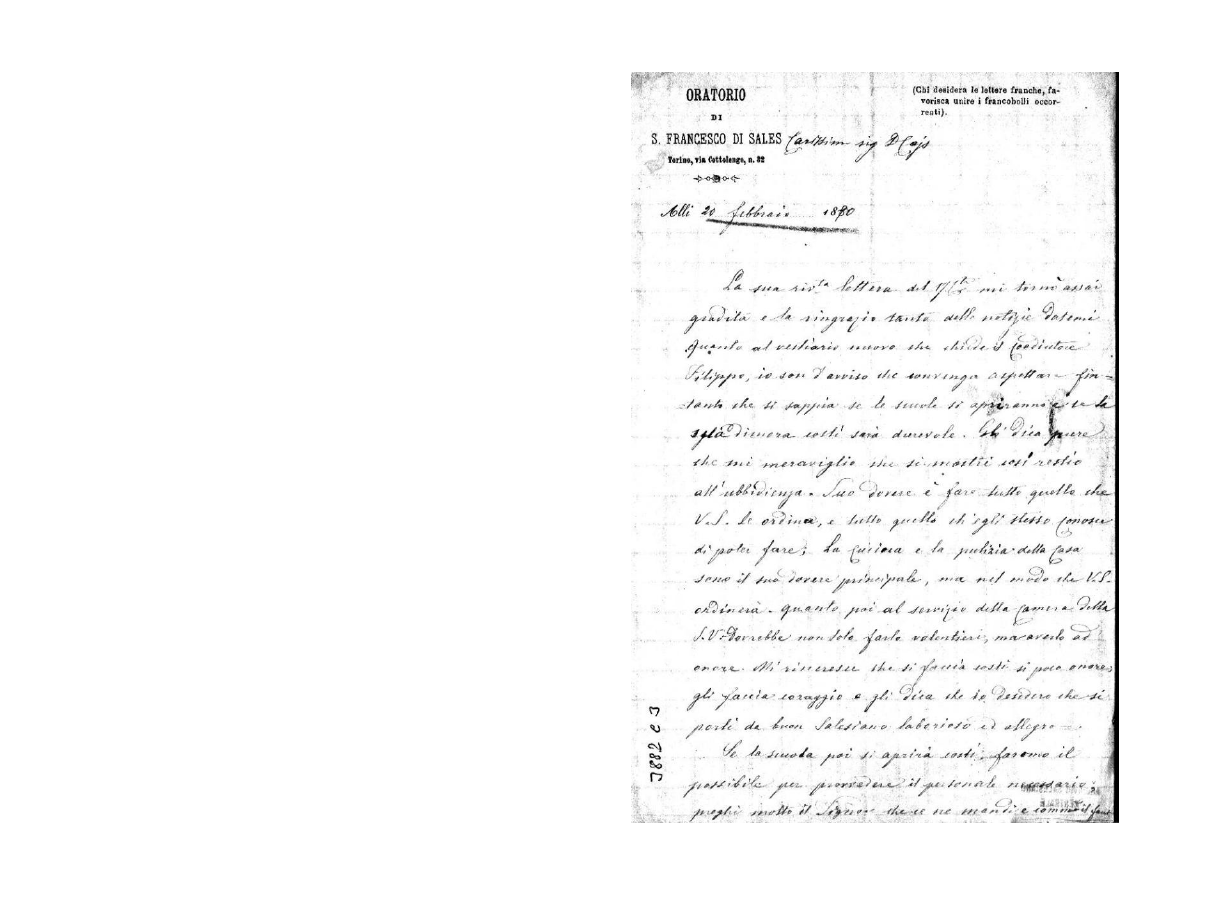 ORATORIO
DI
S. FRANCESCO DI SALES
Torino, via Cottolengo, n. 32
(Chi desidera le lettere franche, fa-
vorisca unire i francobolli occor-
renti).
Carissim sig D Cays
Alli 20 febbraio 1880
La sua riv.ta lettera del 17 mi tornò assai
gradita e la ringrazio tanto delle notizie datemi
Quanto al vestiario nuovo che chiede il Coadiutore
Filippo, io son d'avviso che convenga aspettare fin-
tanto che si sappia se le scuole si apriranno e se la
sua dimora costì sarà durevole. Gli dica pure
che mi meraviglio che si mostri così restio
all'ubbidienza. Suo dovere è fare tutto quello che
V.S. le ordina, e tutto quello ch'egli stesso conosce
di poter fare; La Cucina e la pulizia della Casa
sono il suo dovere principale, ma nel modo che V.S.
ordinerà. Quanto poi al servizio della Camera della
S.V. dovrebbe non solo farlo volentieri, ma averlo ad
onore. Mi rincresce che si faccia costì sì poco onore;
gli faccia coraggio e gli dica che io desidero che si
porti da buon Salesiano laborioso ed allegro.
Se la scuola poi si aprirà costì, faremo il
possibile per provvedere il personale necessario;
preghi molto il Signore che ce ne mandi e
3882 C 3